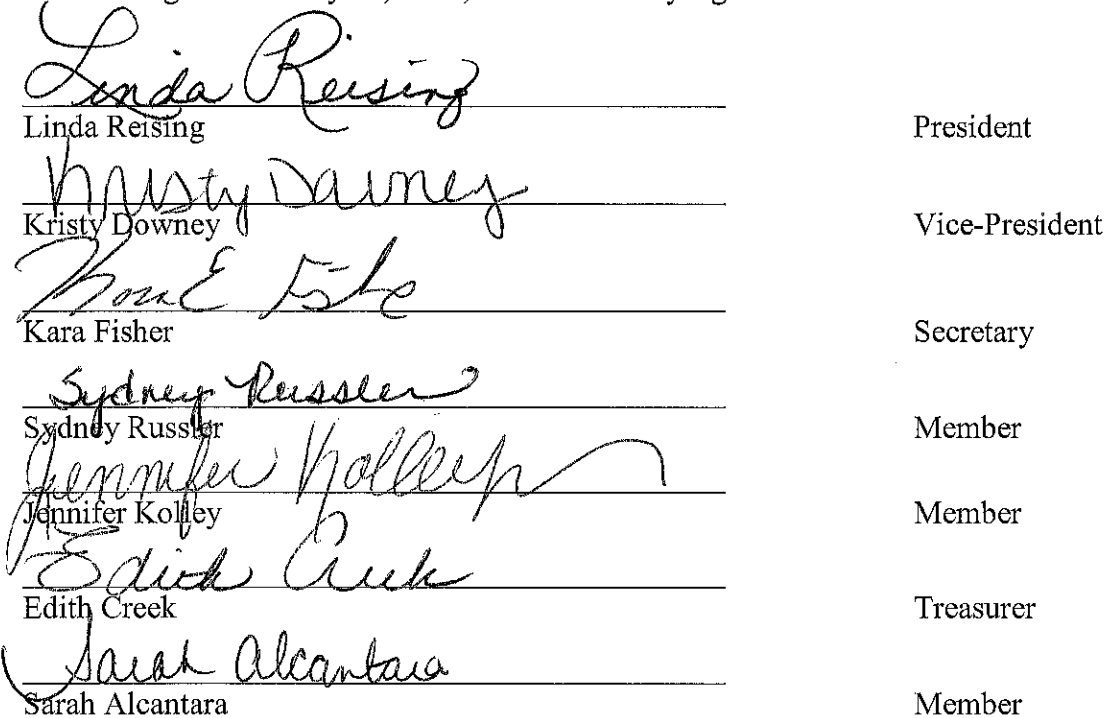 Linda Reising
Linda Reising President
Kristy Downey
Kristy Downey Vice-President
Kara E Fisher
Kara Fisher Secretary
Sydney Russler
Sydney Russler Member
Jennifer Kolley
Jennifer Kolley Member
Edith Creek
Edith Creek Treasurer
Sarah Alcantara
Sarah Alcantara Member